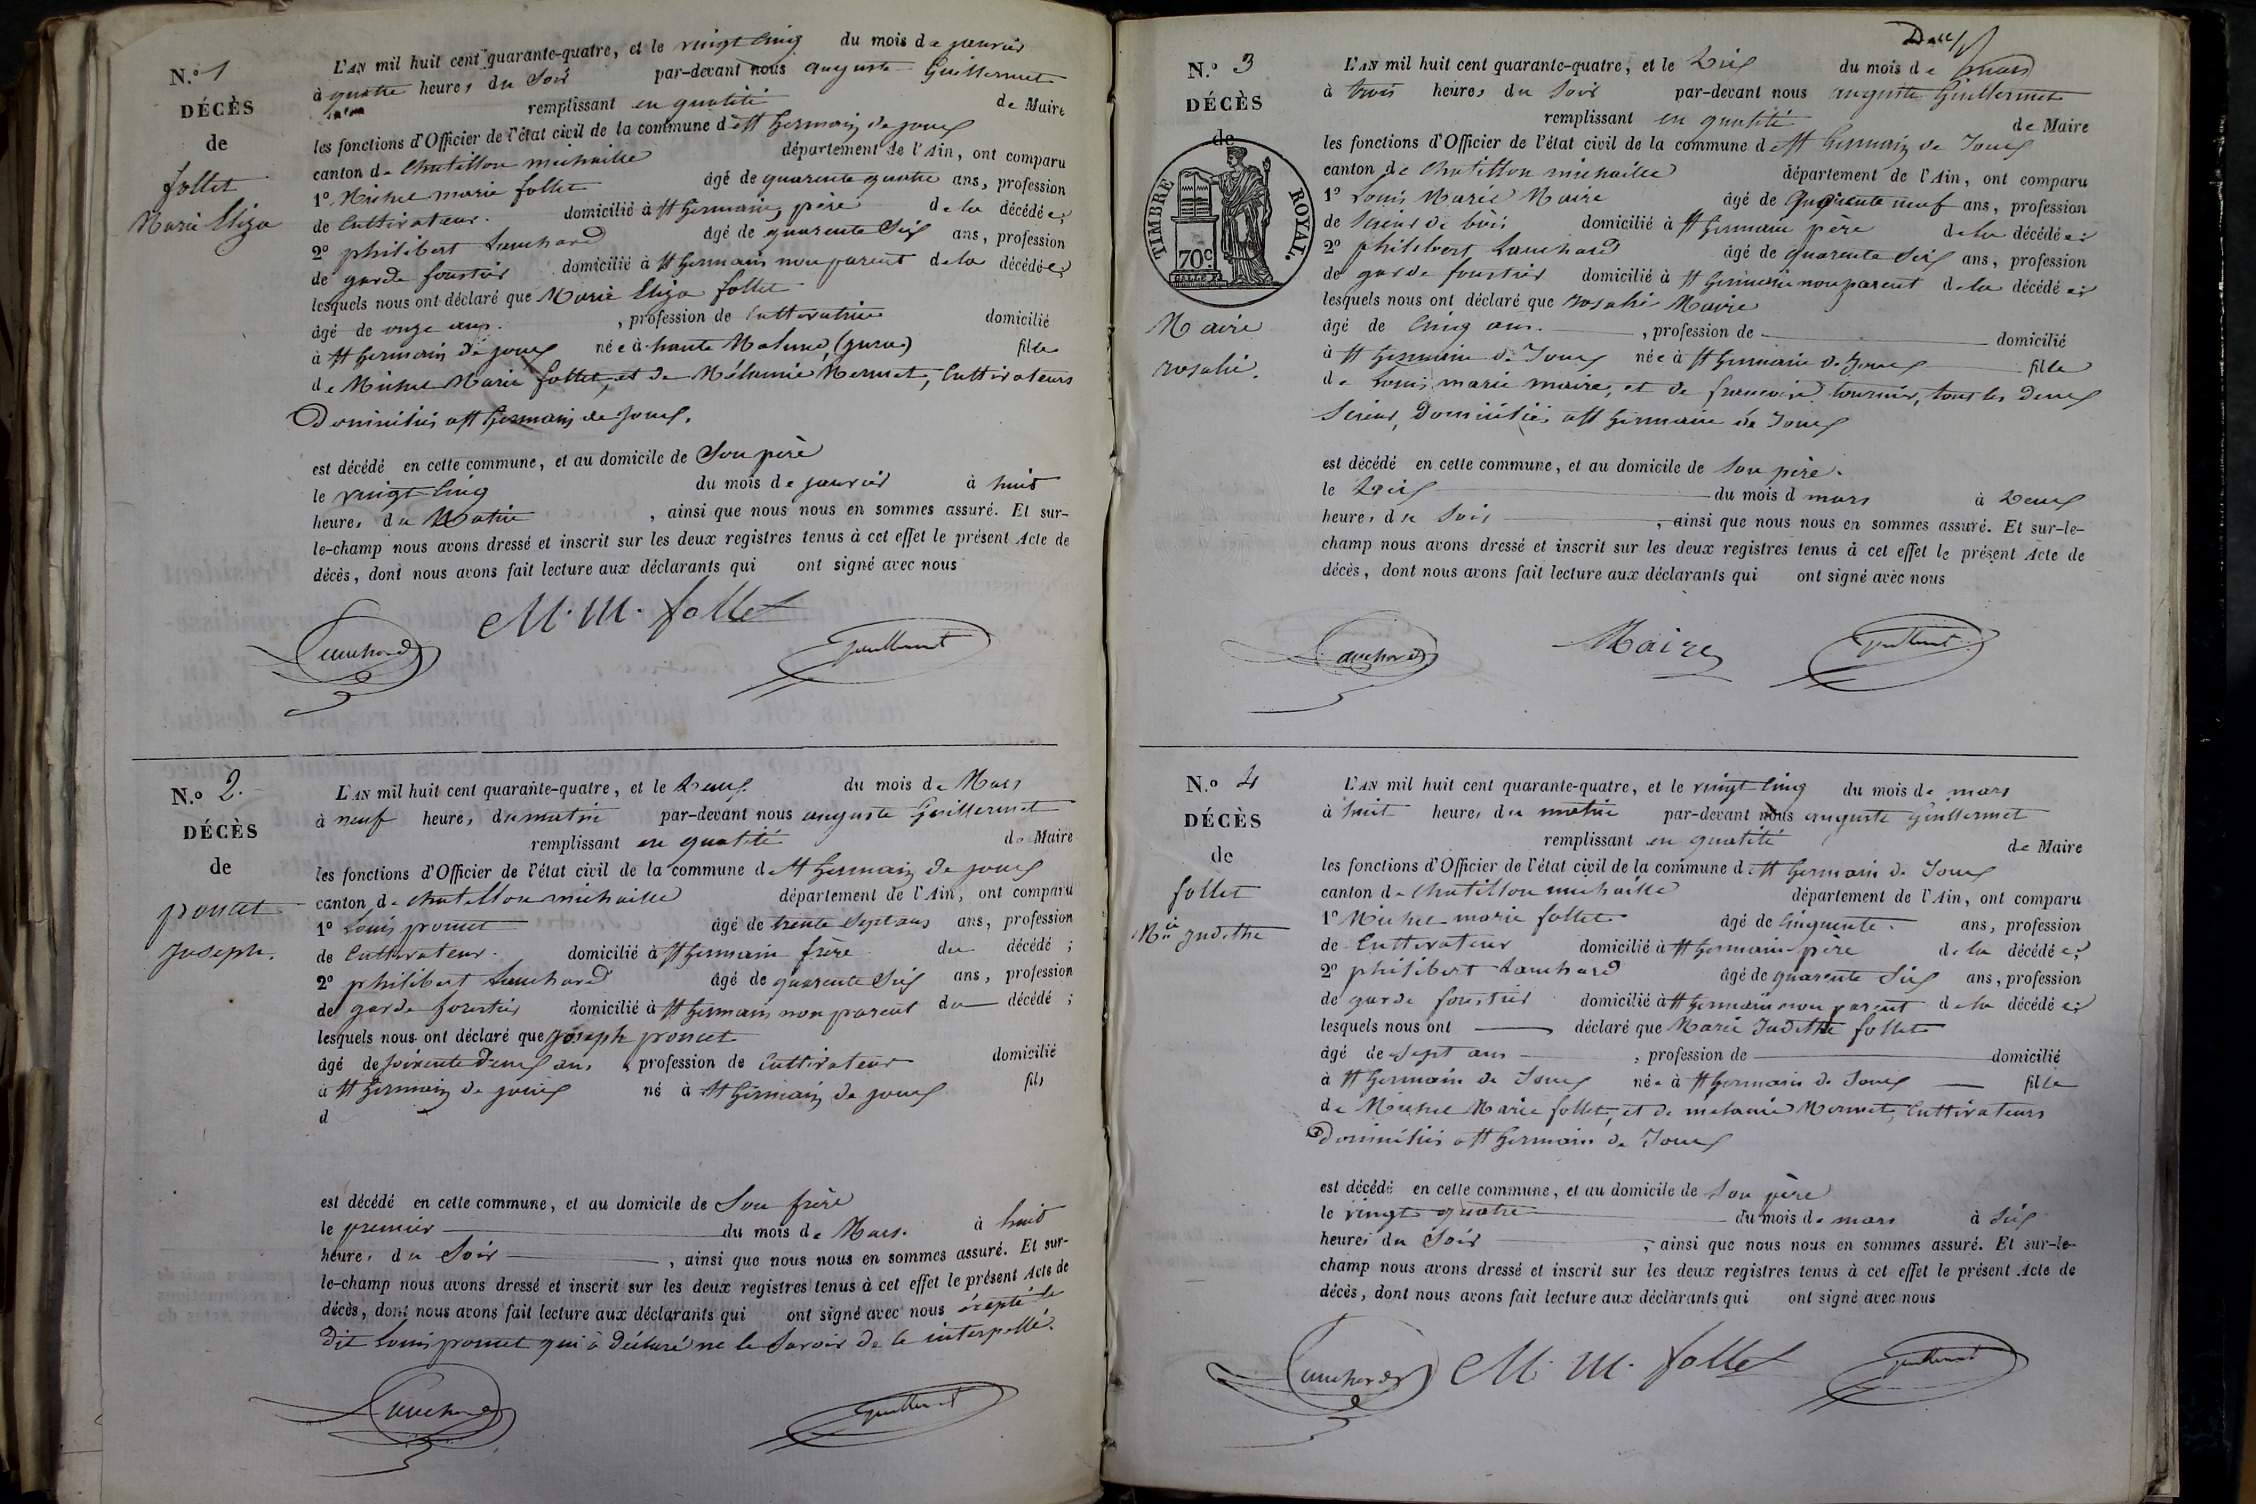 N.o 1
DÉCÈS
de
follet
Marie Eliza
L'AN mil huit cent quarante-quatre, et le vingt cinq du mois de janvier
à quatre heures du Soir par-devant nous auguste Guillermet
remplissant en qualité de Maire
les fonctions d'Officier de l'état civil de la commune de St Germain de joux
canton de Chatillon michaille département de l'Ain, ont comparu
1º Michel marie follet âgé de quarente quatre ans, profession
de Cultivateur. domicilié à St Germain, père de la décédée;
2º philibert Lauchard âgé de quarente Six ans, profession
de garde forestier domicilié à St Germain non parent de la décédée;
lesquels nous ont déclaré que Marie Eliza follet
âgé de onze ans. , profession de Cultivatrice domicilié
à St Germain de joux née à haute Molune, (jura) fille
de Michel Marie follet, et de Mélanie Mermet, Cultivateurs
Domiciliés à St Germain de Joux.
est décédé en cette commune, et au domicile de Son père
le vingt Cinq du mois de janvier à huit
heures du Matin , ainsi que nous nous en sommes assuré. Et sur-
le-champ nous avons dressé et inscrit sur les deux registres tenus à cet effet le présent Acte de
décès, dont nous avons fait lecture aux déclarants qui ont signé avec nous
Lauchard M. M. follet Guillermet
N.o 2.
DÉCÈS
de
poncet
Joseph.
L'AN mil huit cent quarante-quatre, et le Deux du mois de Mars
à neuf heures du matin par-devant nous auguste Guillermet
remplissant en qualité de Maire
les fonctions d'Officier de l'état civil de la commune de St Germain de joux
canton de chatillon michaille département de l'Ain, ont comparu
1º Louis poncet âgé de trente Sept ans ans, profession
de Cultivateur. domicilié à St Germain frère du décédé;
2º philibert Lauchard âgé de quarente Six ans, profession
de garde forestier domicilié à St Germain non parent du décédé;
lesquels nous ont déclaré que joseph poncet
âgé de soixente Deux ans, profession de Cultivateur domicilié
à St Germain de joux né à St Germain de joux fils
d
est décédé en cette commune, et au domicile de Son frère
le premier du mois de Mars. à huit
heures du Soir , ainsi que nous nous en sommes assuré. Et sur-
le-champ nous avons dressé et inscrit sur les deux registres tenus à cet effet le présent Acte de
décès, dont nous avons fait lecture aux déclarants qui ont signé avec nous éxepté le
Dit Louis poncet qui à Déclaré ne le Savoir de ce interpellé.
Lauchard Guillermet
N.o 3
DÉCÈS
de
TIMBRE ROYAL.
70c.
Maire
rosalie.
L'AN mil huit cent quarante-quatre, et le Dix du mois de mars
à trois heures du Soir par-devant nous auguste Guillermet
remplissant en qualité de Maire
les fonctions d'Officier de l'état civil de la commune de St Germain de Joux
canton de Chatillon michaille département de l'Ain, ont comparu
1º Louis Marie Maire âgé de neuf ans, profession
de Scieur de bois domicilié à St Germain père de la décédée;
2º philibert Lauchard âgé de quarente Six ans, profession
de garde forestier domicilié à St Germain non parent de la décédée;
lesquels nous ont déclaré que rosalie Maire
âgé de Cinq ans. , profession de domicilié
à St Germain de Joux née à St Germain de Joux fille
de Louis marie maire, et de francoise tournier, tout les Deux
Scieur, Domiciliés à St Germain de Joux
est décédé en cette commune, et au domicile de Son père.
le Dix du mois d mars à Deux
heures du Soir , ainsi que nous nous en sommes assuré. Et sur-le-
champ nous avons dressé et inscrit sur les deux registres tenus à cet effet le présent Acte de
décès, dont nous avons fait lecture aux déclarants qui ont signé avec nous
Lauchard Maire Guillermet
N.o 4
DÉCÈS
de
follet
Mie judithe
L'AN mil huit cent quarante-quatre, et le vingt Cinq du mois de mars
à huit heures du matin par-devant nous auguste Guillermet
remplissant en qualité de Maire
les fonctions d'Officier de l'état civil de la commune de St Germain de Joux
canton de Chatillon michaille département de l'Ain, ont comparu
1º Michel marie follet âgé de Cinquente. ans, profession
de Cultivateur domicilié à St Germain père de la décédée;
2º philibert Lauchard âgé de quarente Six ans, profession
de garde forestier domicilié à St Germain non parent de la décédée;
lesquels nous ont déclaré que Marie Judithe follet
âgé de Sept ans , profession de domicilié
à St Germain de Joux née à St Germain de Joux fille
de Michel Marie follet, et de melanie Mermet, Cultivateurs
Domiciliés à St Germain de Joux
est décédé en cette commune, et au domicile de Son père
le vingt quatre du mois de mars à Six
heures du Soir , ainsi que nous nous en sommes assuré. Et sur-le-
champ nous avons dressé et inscrit sur les deux registres tenus à cet effet le présent Acte de
décès, dont nous avons fait lecture aux déclarants qui ont signé avec nous
Lauchard M. M. follet Guillermet